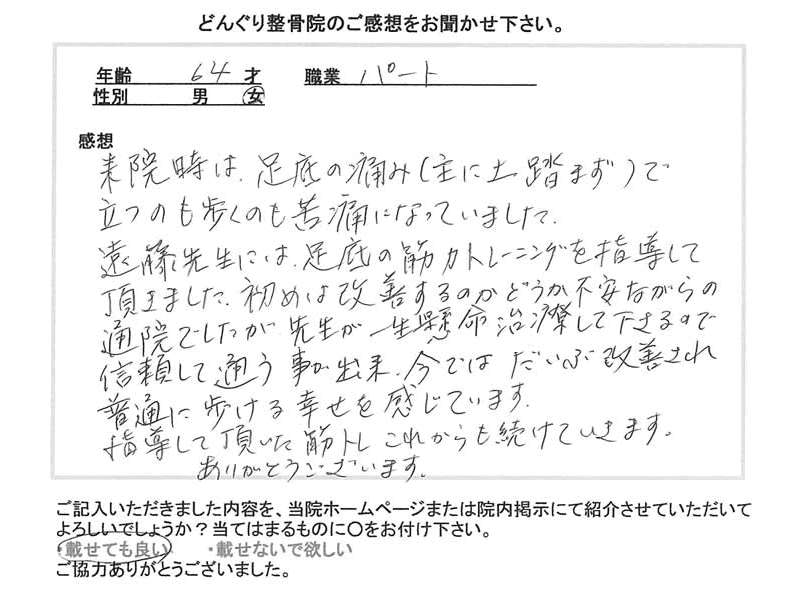 どんぐり整骨院のご感想をお聞かせ下さい。
年齢 64 才 職業 パート
性別 男 女
感想
来院時は、足底の痛み(主に土踏まず)で
立つのも歩くのも苦痛になっていました。
遠藤先生には、足底の筋力トレーニングを指導して
頂きました。初めは改善するのかどうか不安ながらの
通院でしたが先生が一生懸命治療して下さるので
信頼して通う事が出来、今ではだいぶ改善され
普通に歩ける幸せを感じています。
指導して頂いた筋トレこれからも続けていきます。
ありがとうございます。
ご記入いただきました内容を、当院ホームページまたは院内掲示にて紹介させていただいて
よろしいでしょうか？当てはまるものに〇をお付け下さい。
・載せても良い ・載せないで欲しい
ご協力ありがとうございました。